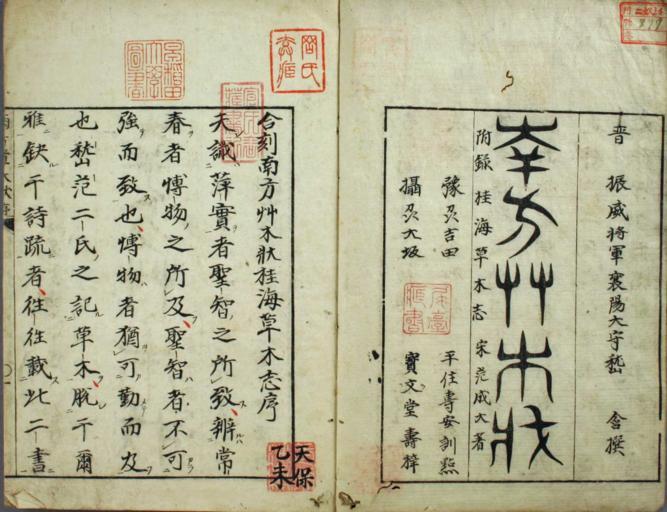 晋 振威将軍襄陽大守嵆 含撰
南方艸木状
附録 桂海草木志 宋范成大著
豫及吉田 平住專安訓点
攝及大坂 寶文堂壽梓
合刻南方艸木狀桂海草木志序
夫識萍實者聖智之所致辨常
春者博物之所及聖智者不可
強而致也博物者猶可勤而及
也嵆范二氏之記草木脱于爾
雅缺于詩疏者往往載此二書
天保
乙未